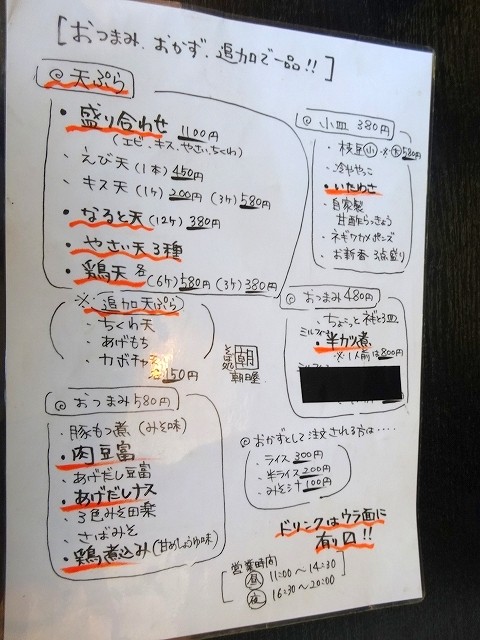 [おつまみ、おかず、追加で一品!!]
◎天ぷら
・盛り合わせ 1100円
(エビ、キス、やさい、ちくわ)
・えび天 (1本) 450円
・キス天 (1ヶ) 200円 (3ヶ) 580円
・なると天 (12ヶ) 380円
・やさい天3種
・鶏天 各 (6ヶ) 580円 (3ヶ) 380円
※追加天ぷら
・ちくわ天
・あげもち
・カボチャ
各150円
そば処 朝 朝日屋
◎おつまみ580円
・豚もつ煮 (みそ味)
・肉豆富
・あげだし豆富
・あげだしナス
・3色みそ田楽
・さばみそ
・鶏煮込み (甘めしょうゆ味)
◎小皿 380円
・枝豆(小) ※(大)580円
・冷やっこ
・いたわさ
・自家製
甘酢らっきょう
・ネギワカメポンズ
・お新香 3点盛り
◎おつまみ480円
・ちょこっとネギと3皿
ミルフィーユ
・半カツ煮
※1人前は800円
◎おかずとして注文される方は‥‥
・ライス 300円
・半ライス 200円
・みそ汁 100円
ドリンクはウラ面に
有り□!!
営業時間
(昼) 11:00~14:30
(夜) 16:30~20:00